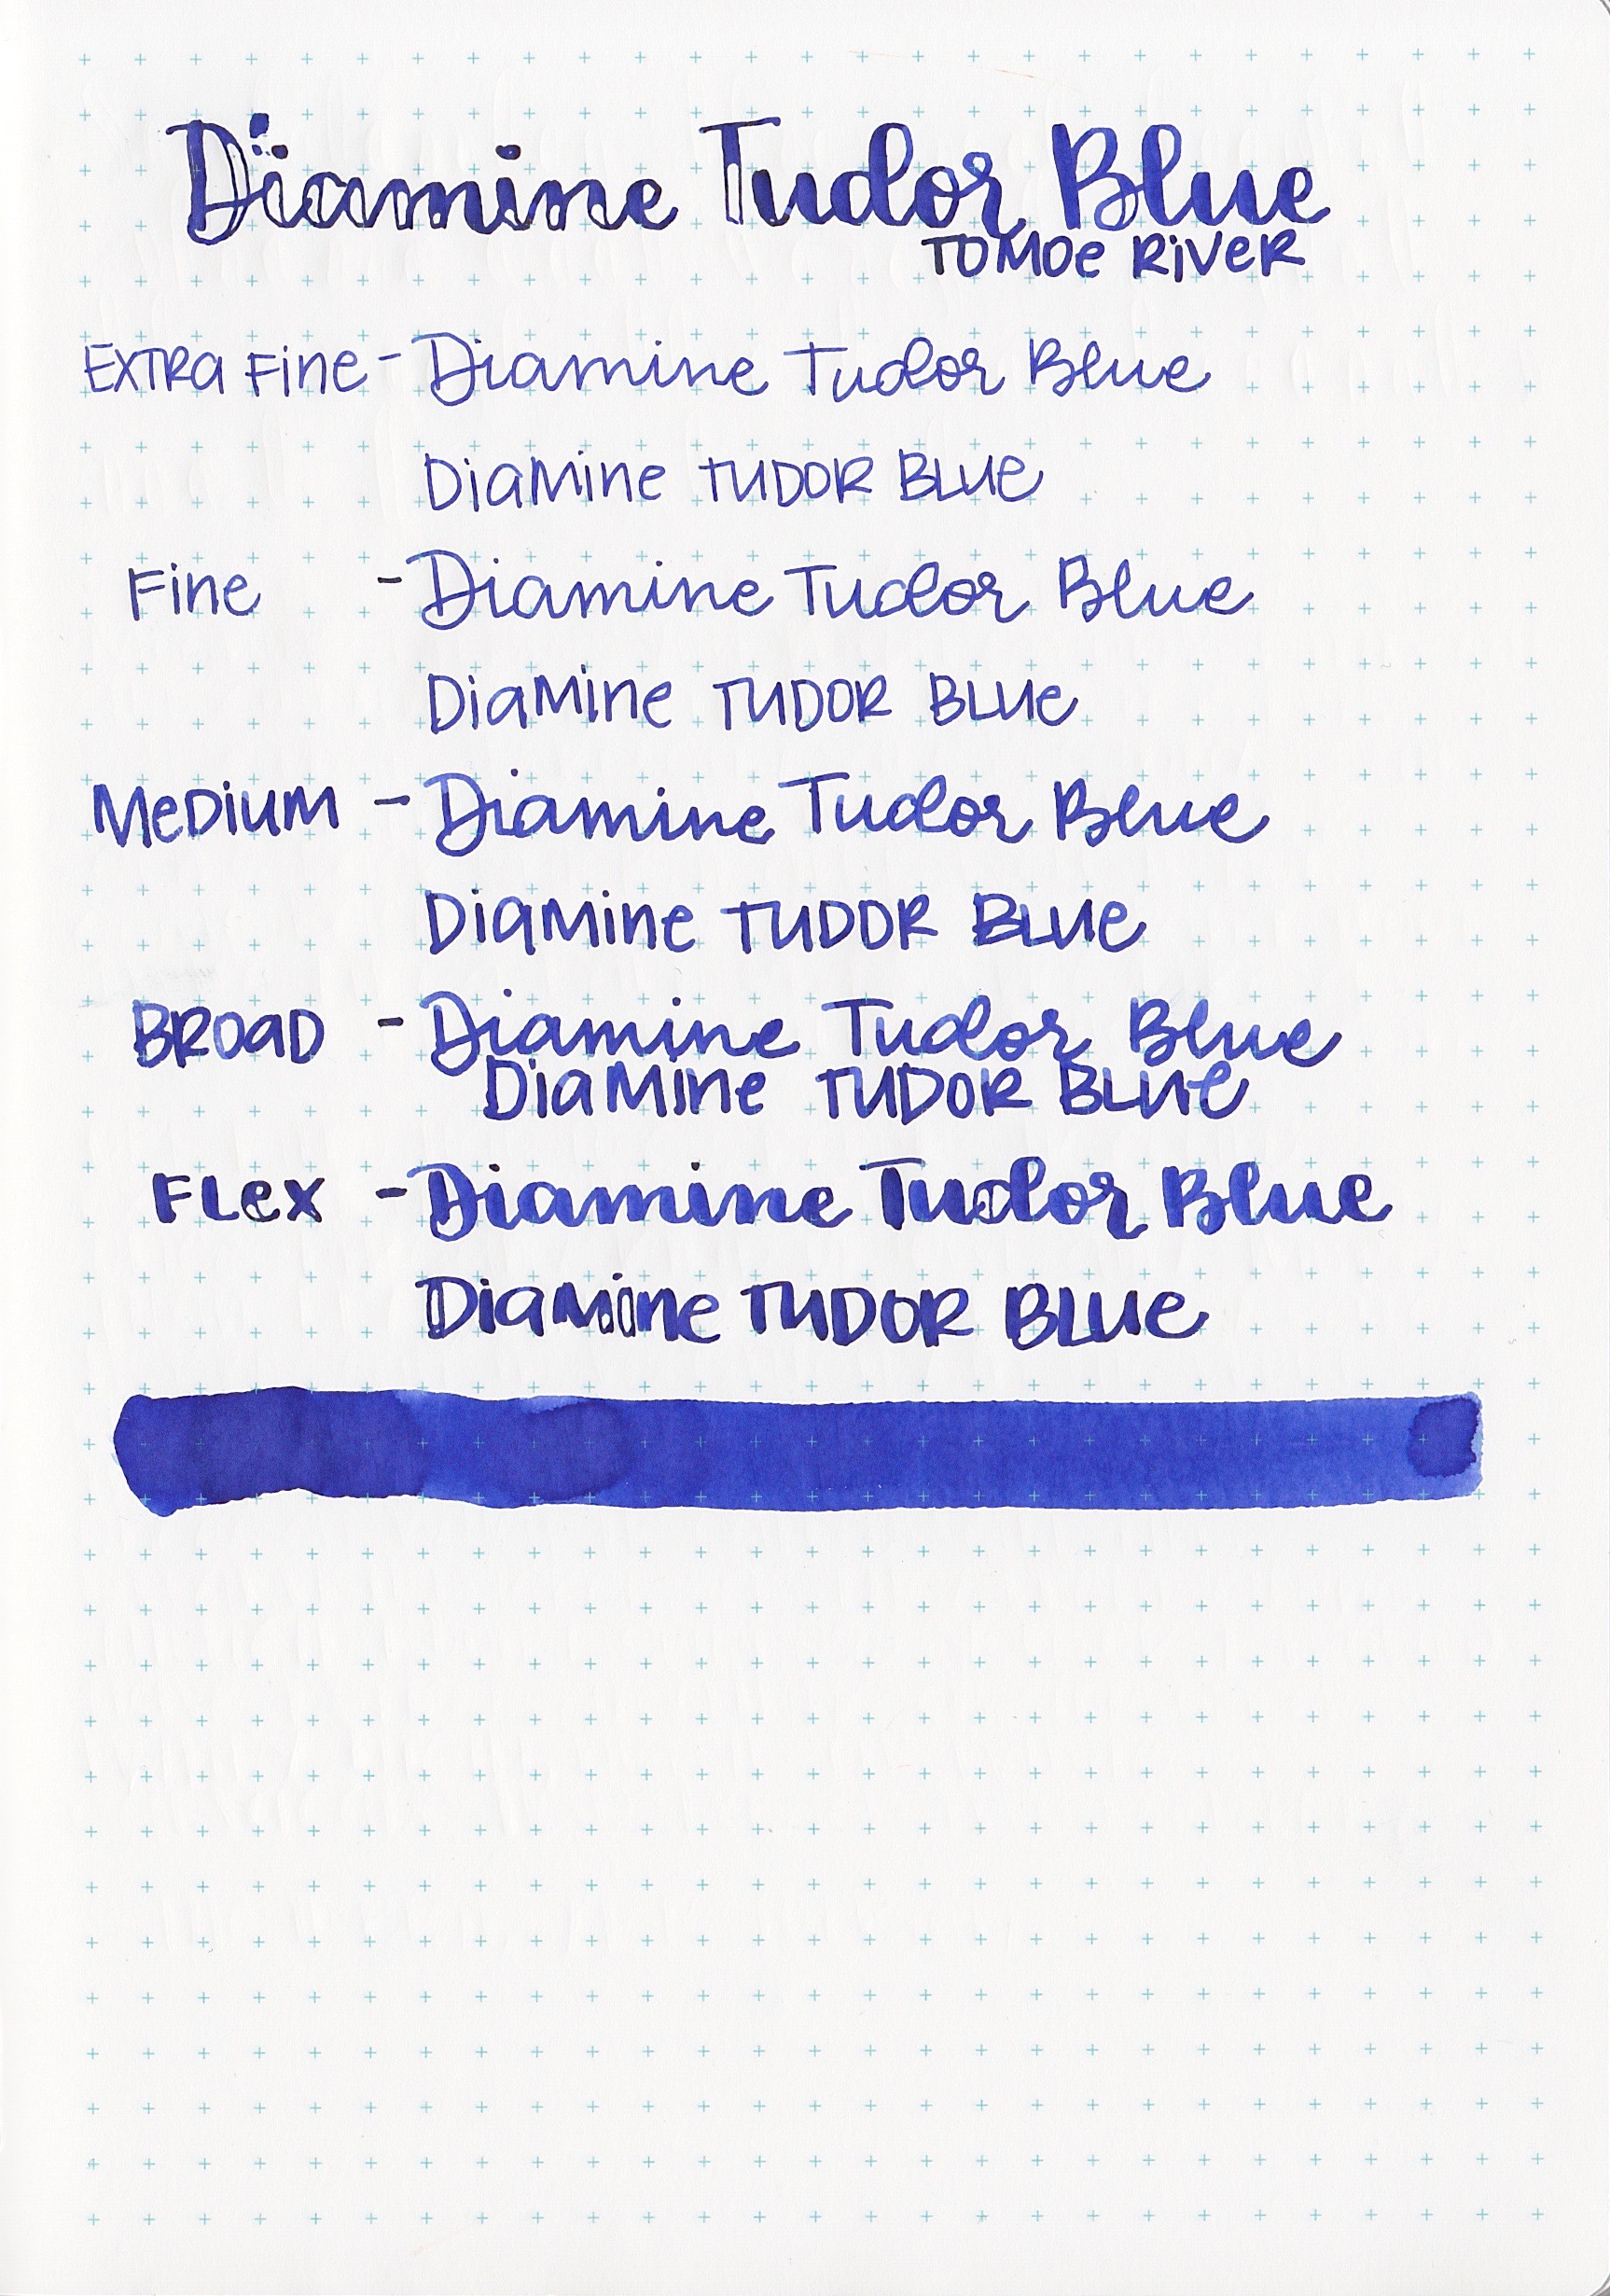 Diamine Tudor Blue
TOMOe RiVeR
EXTRa Fine - Diamine Tudor Blue
DiaMine TUDOR BLUe
Fine - Diamine Tudor Blue
DiaMine TUDOR BLUe
MeDiUM - Diamine Tudor Blue
DiaMine TUDOR BLUe
BROaD - Diamine Tudor Blue
DiaMine TUDOR BLUe
FLex - Diamine Tudor Blue
DiaMine TUDOR BLUe